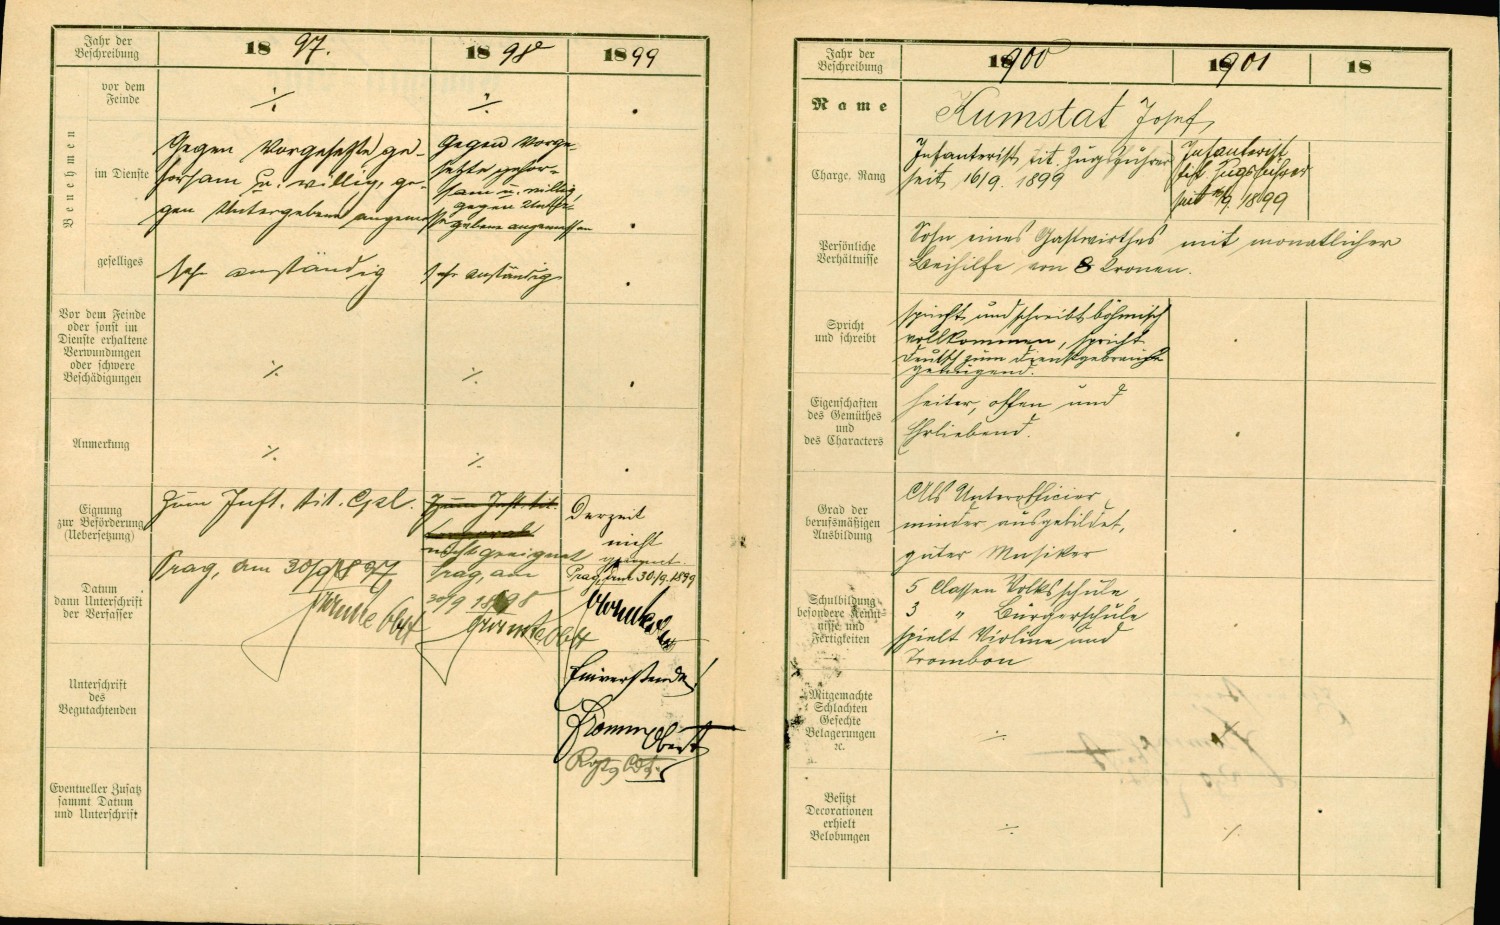 Jahr der
Beschreibung
18 97.
18 98
18 99
Benehmen
vor dem
Feinde
./.
./.
.
im Dienste
Gegen Vorgesetzte ge-
horsam u. willig, ge-
gen Untergebene angemessen
Gegen Vorge-
setzte gehor-
sam u. willig,
gegen Unter-
gebene angemessen
.
geselliges
sehr anständig
sehr anständig
.
Vor dem Feinde
oder sonst im
Dienste erhaltene
Verwundungen
oder schwere
Beschädigungen
./.
./.
.
Anmerkung
./.
./.
.
Eignung
zur Beförderung
(Uebersetzung)
Zum Inft. tit. Cpl.
Zum Inft. tit.
Corporal
nicht geeignet
Derzeit
nicht
geeignet
Datum
dann Unterschrift
der Verfasser
Prag, am 30/9 1897
Prag, am
30/9 1898
Prag, am 30./9. 1899
Unterschrift
des
Begutachtenden
Einverstanden!
Oberst
Eventueller Zusatz
sammt Datum
und Unterschrift
Jahr der
Beschreibung
18 1900
18 1901
18
Name
Kumstat Josef
Charge, Rang
Infanterist, tit. Zugsführer
seit 16/9. 1899
Infanterist
tit. Zugsführer
seit 16/9. 1899
Persönliche
Verhältnisse
Sohn eines Gastwirthes mit monatlicher
Beihilfe von 8 Kronen.
Spricht
und schreibt
spricht und schreibt böhmisch
vollkommen, spricht
deutsch zum Dienstgebrauche
genügend.
.
Eigenschaften
des Gemüthes
und
des Characters
heiter, offen und
Ehrliebend.
.
Grad der
berufsmäßigen
Ausbildung
Als Unterofficier
minder ausgebildet,
guter Musiker
.
Schulbildung
besondere Kennt-
nisse und
Fertigkeiten
5 Classen Volksschule,
3 " Bürgerschule
spielt Violine und
Trombon
.
Mitgemachte
Schlachten
Gefechte
Belagerungen
2c.
./.
Besitzt
Decorationen
erhielt
Belobungen
./.
./.
.